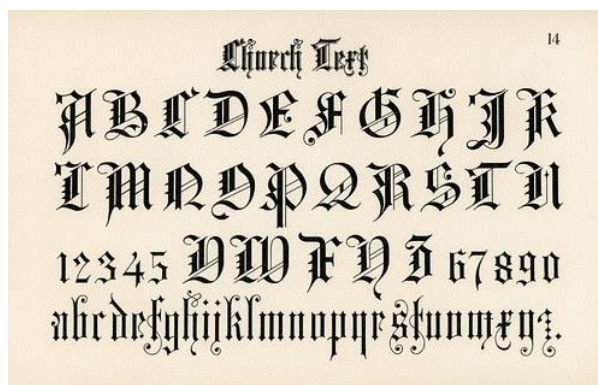 14
Church Text
A B C D E F G H J K
L M N O P Q R S T U
1 2 3 4 5 V W X Y Z 6 7 8 9 0
a b c d e f g h i j k l m n o p q r s t u v w x y z .